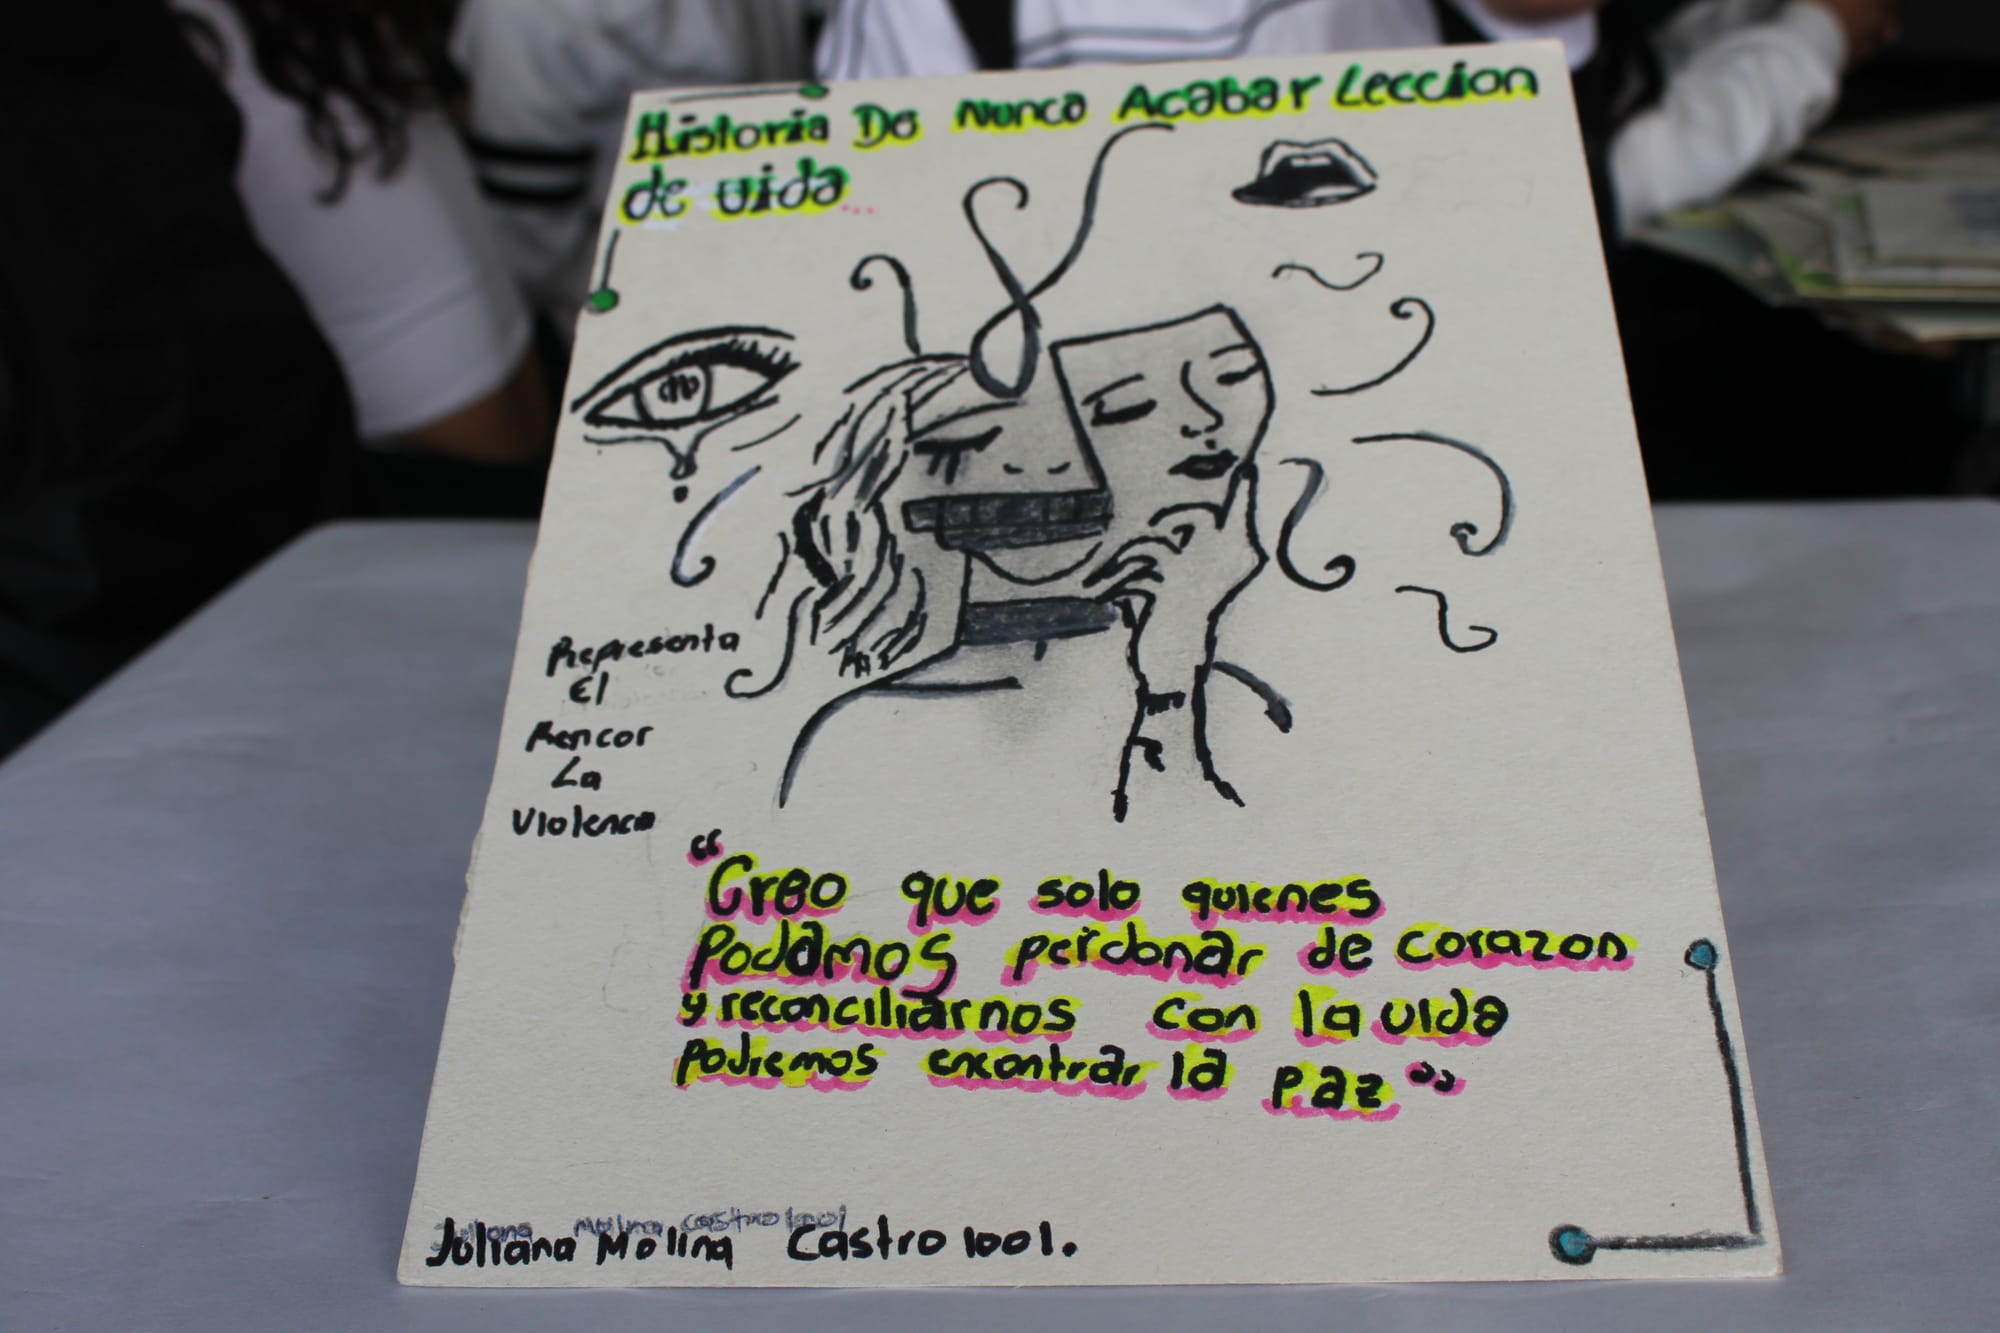 Historia De Nunca Acabar Leccion
de vida...
Representa
El
Rencor
La
Violencia
"Creo que solo quienes
Podamos perdonar de corazon
y reconciliarnos con la vida
Podremos encontrar la Paz"
Juliana Molina Castro 1001
Juliana Molina Castro 1001.